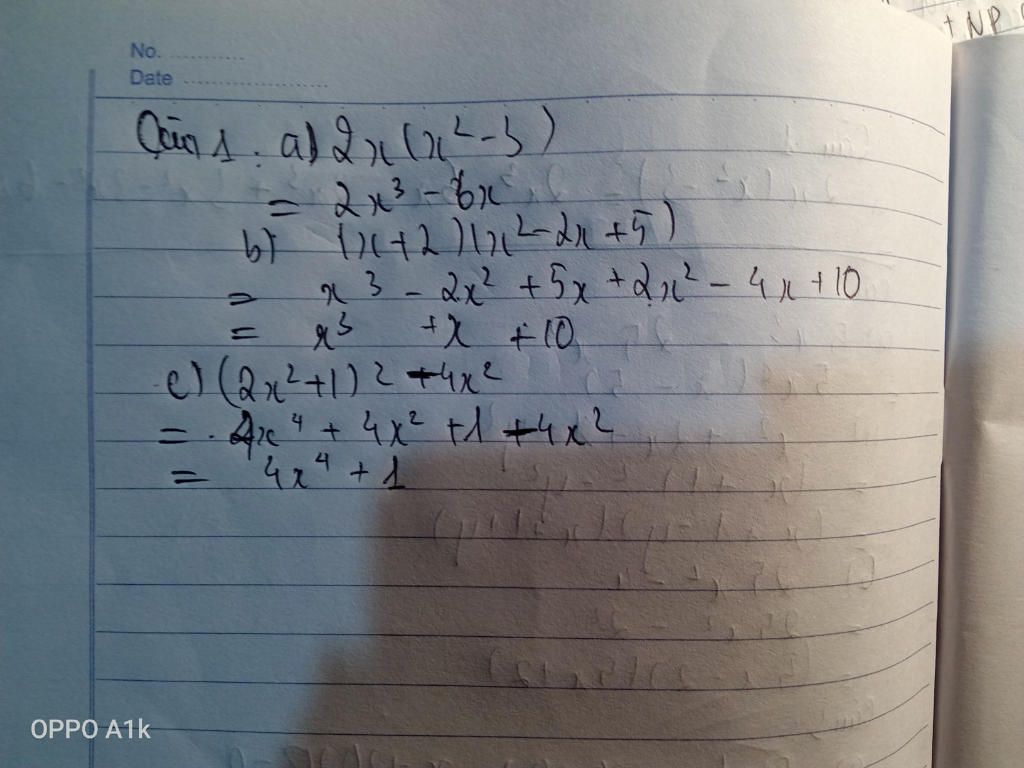 + NP
No. ............
Date ......................
Câu 1. a) 2x(x² - 3)
= 2x³ - 6x
b) (x+2)(x² - 2x + 5)
= x³ - 2x² + 5x + 2x² - 4x + 10
= x³ + x + 10
c) (2x²+1)² - 4x²
= 4x⁴ + 4x² + 1 - 4x²
= 4x⁴ + 1
OPPO A1k